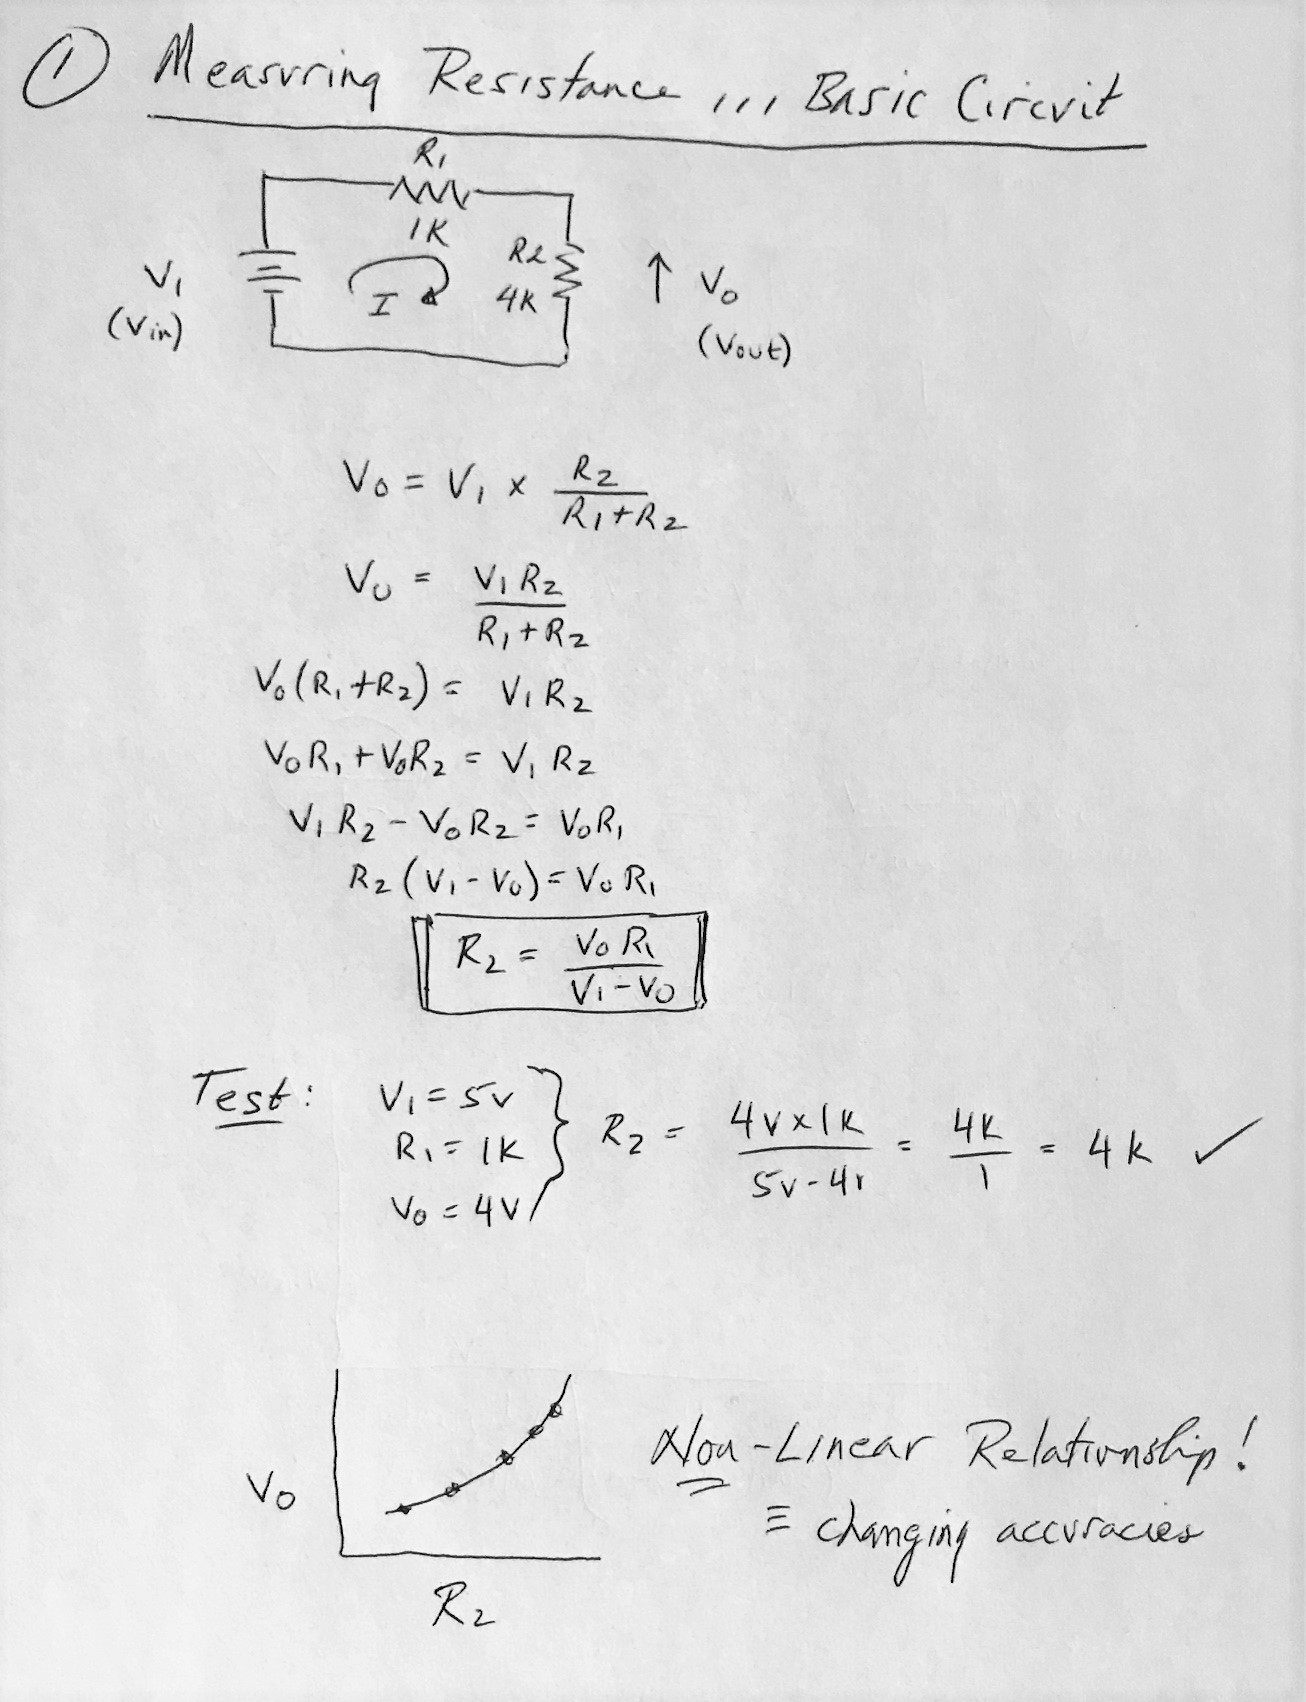 ① Measuring Resistance ... Basic Circuit
R1
1K
R2
4K
I
V1
(Vin)
↑ Vo
(Vout)
Vo = V1 × R2 / (R1+R2)
Vo = V1 R2 / (R1+R2)
Vo(R1+R2) = V1 R2
VoR1 + VoR2 = V1 R2
V1 R2 - VoR2 = VoR1
R2 (V1 - Vo) = Vo R1
R2 = Vo R1 / (V1 - Vo)
Test: V1 = 5v
R1 = 1K
Vo = 4V
R2 = 4v x 1k / (5v - 4v) = 4k / 1 = 4k ✓
Vo
R2
Non-Linear Relationship!
≡ changing accuracies